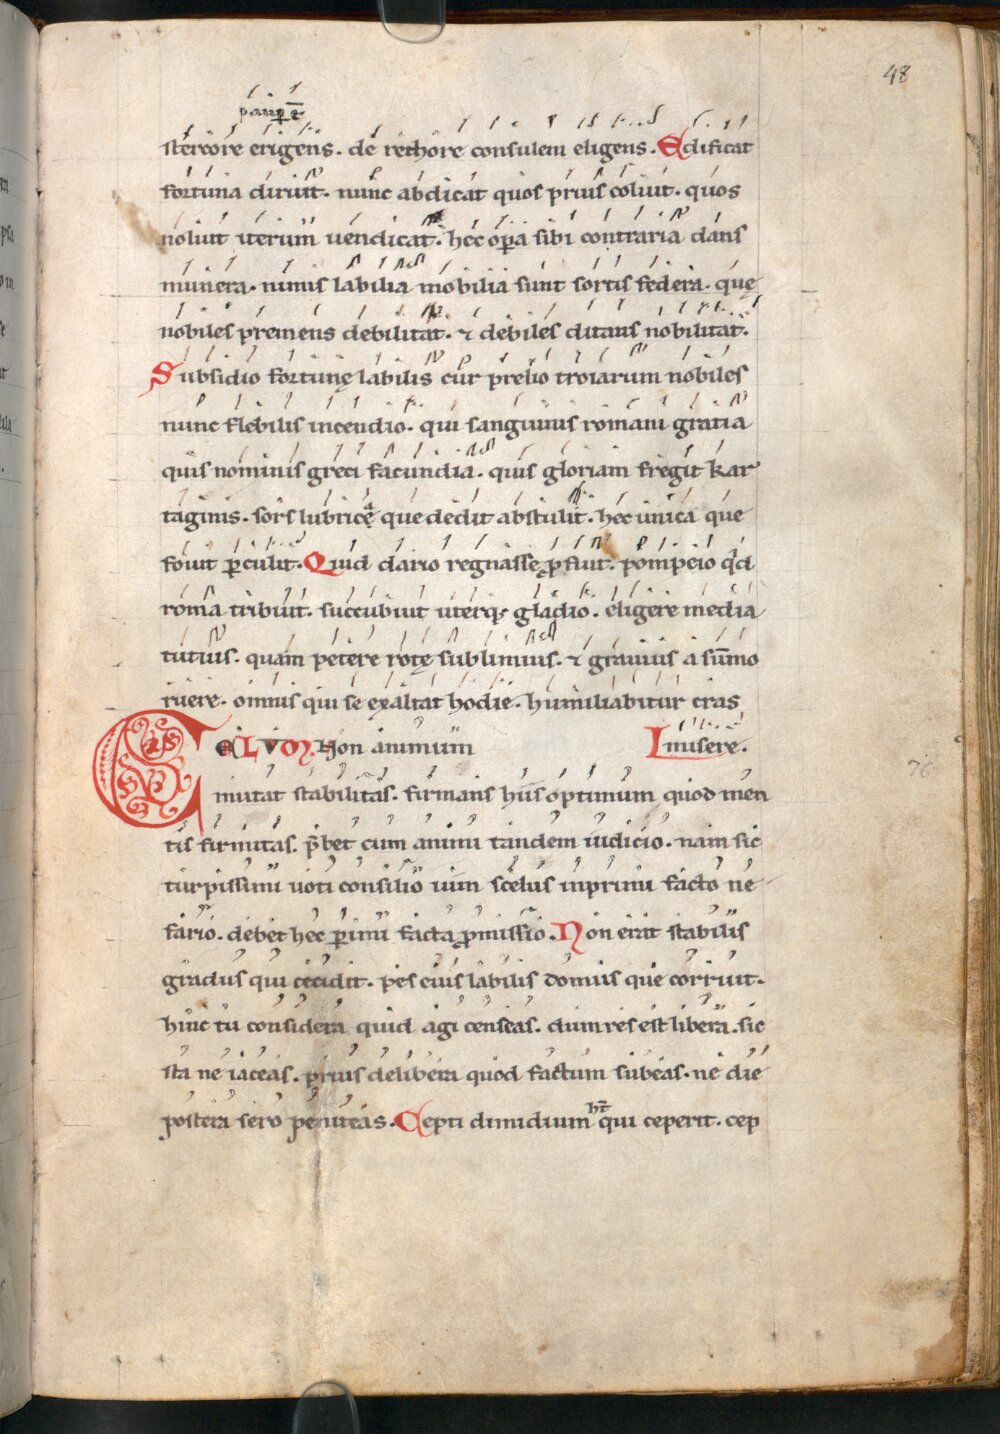 48
paup̄ē
stercore erigens. de rethore consulem eligens. Edificat
fortuna diruit. nunc abdicat quos prius coluit. quos
noluit iterum uendicat. hec op̄a sibi contraria dans
munera. nimis labilia mobilia sunt sortis federa. quę
nobiles premens debilitat. ⁊ debiles ditans nobilitat.
Subsidio fortunę labilis cur prelio troiarum nobiles
nunc flebilis incendio. qui sanguinis romani gratia
quis nominis greci facundia. quis gloriam fregit kar
taginis. sors lubricę que dedit abstulit. hec unica que
fouit ꝑculit. Quid dario regnasse ꝓfuit. pompeio qd̄
roma tribuit. succubuit uterq; gladio. eligere media
tutius. quam petere rotę sublimius. ⁊ grauius a sūmo
ruere. omnis qui se exaltat hodie. humiliabitur cras
CELVM Non animum
I misere.
mutat stabilitas. firmans hiis optimum quod men
76
tis firmitas. p̄bet cum animi tandem iudicio. nam sic
turpissimi uoti consilio uim scelus inprimi facto ne
fario. debet hec ꝑimi facta ꝓmissio. Non erat stabilis
gradus qui cecidit. pes eius labilis domus que corruit.
hinc tu considera quid agi censeas. dum res est libera. sic
sta ne iaceas. prius delibera quod factum subeas. ne die
postera sero peniteas. Cepti dimidium
ht̄
qui ceperit. cep